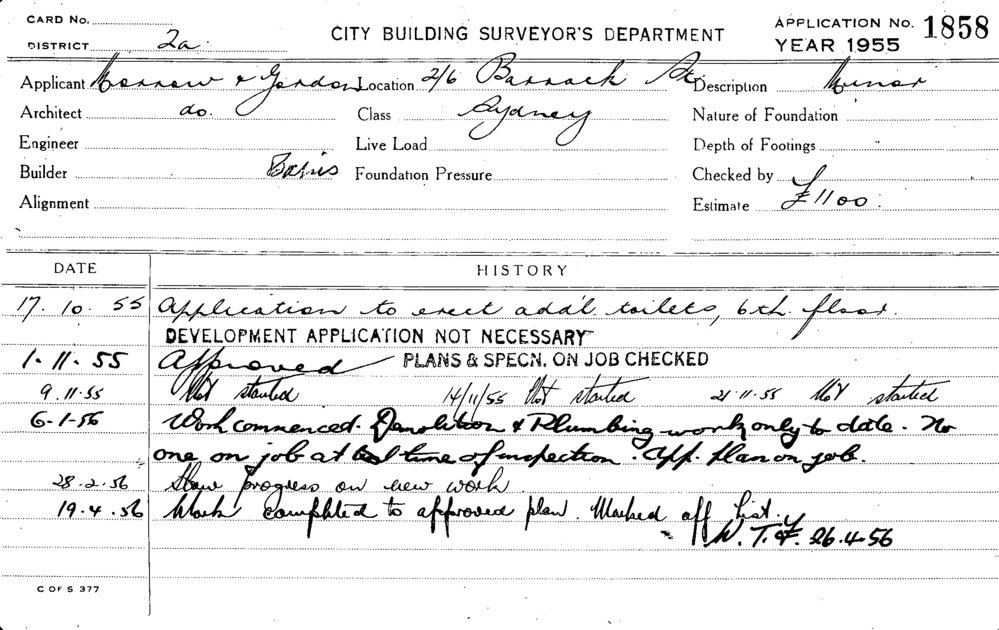 CARD No. CITY BUILDING SURVEYOR'S DEPARTMENT APPLICATION No. 1858
DISTRICT 2a YEAR 1955
Applicant Morrow & Gordon Location 2/6 Barrack St. Description Minor
Architect do. Class Sydney Nature of Foundation
Engineer Live Load Depth of Footings
Builder Foundation Pressure Checked by
Alignment Estimate £1100
DATE HISTORY
17.10.55 Application to erect add'l toilets, 6th floor.
DEVELOPMENT APPLICATION NOT NECESSARY
1.11.55 Approved PLANS & SPECN. ON JOB CHECKED
9.11.55 Not started 14/11/55 Not started 21.11.55 Not started
6-1-56 Work commenced. Demolition & Plumbing work only to date. No
one on job at time of inspection. App. plan on job.
28.2.56 Slow progress on new work
19.4.56 Work completed to approved plan. Marked off list.
W.T.F. 26.4.56
C OF S 377